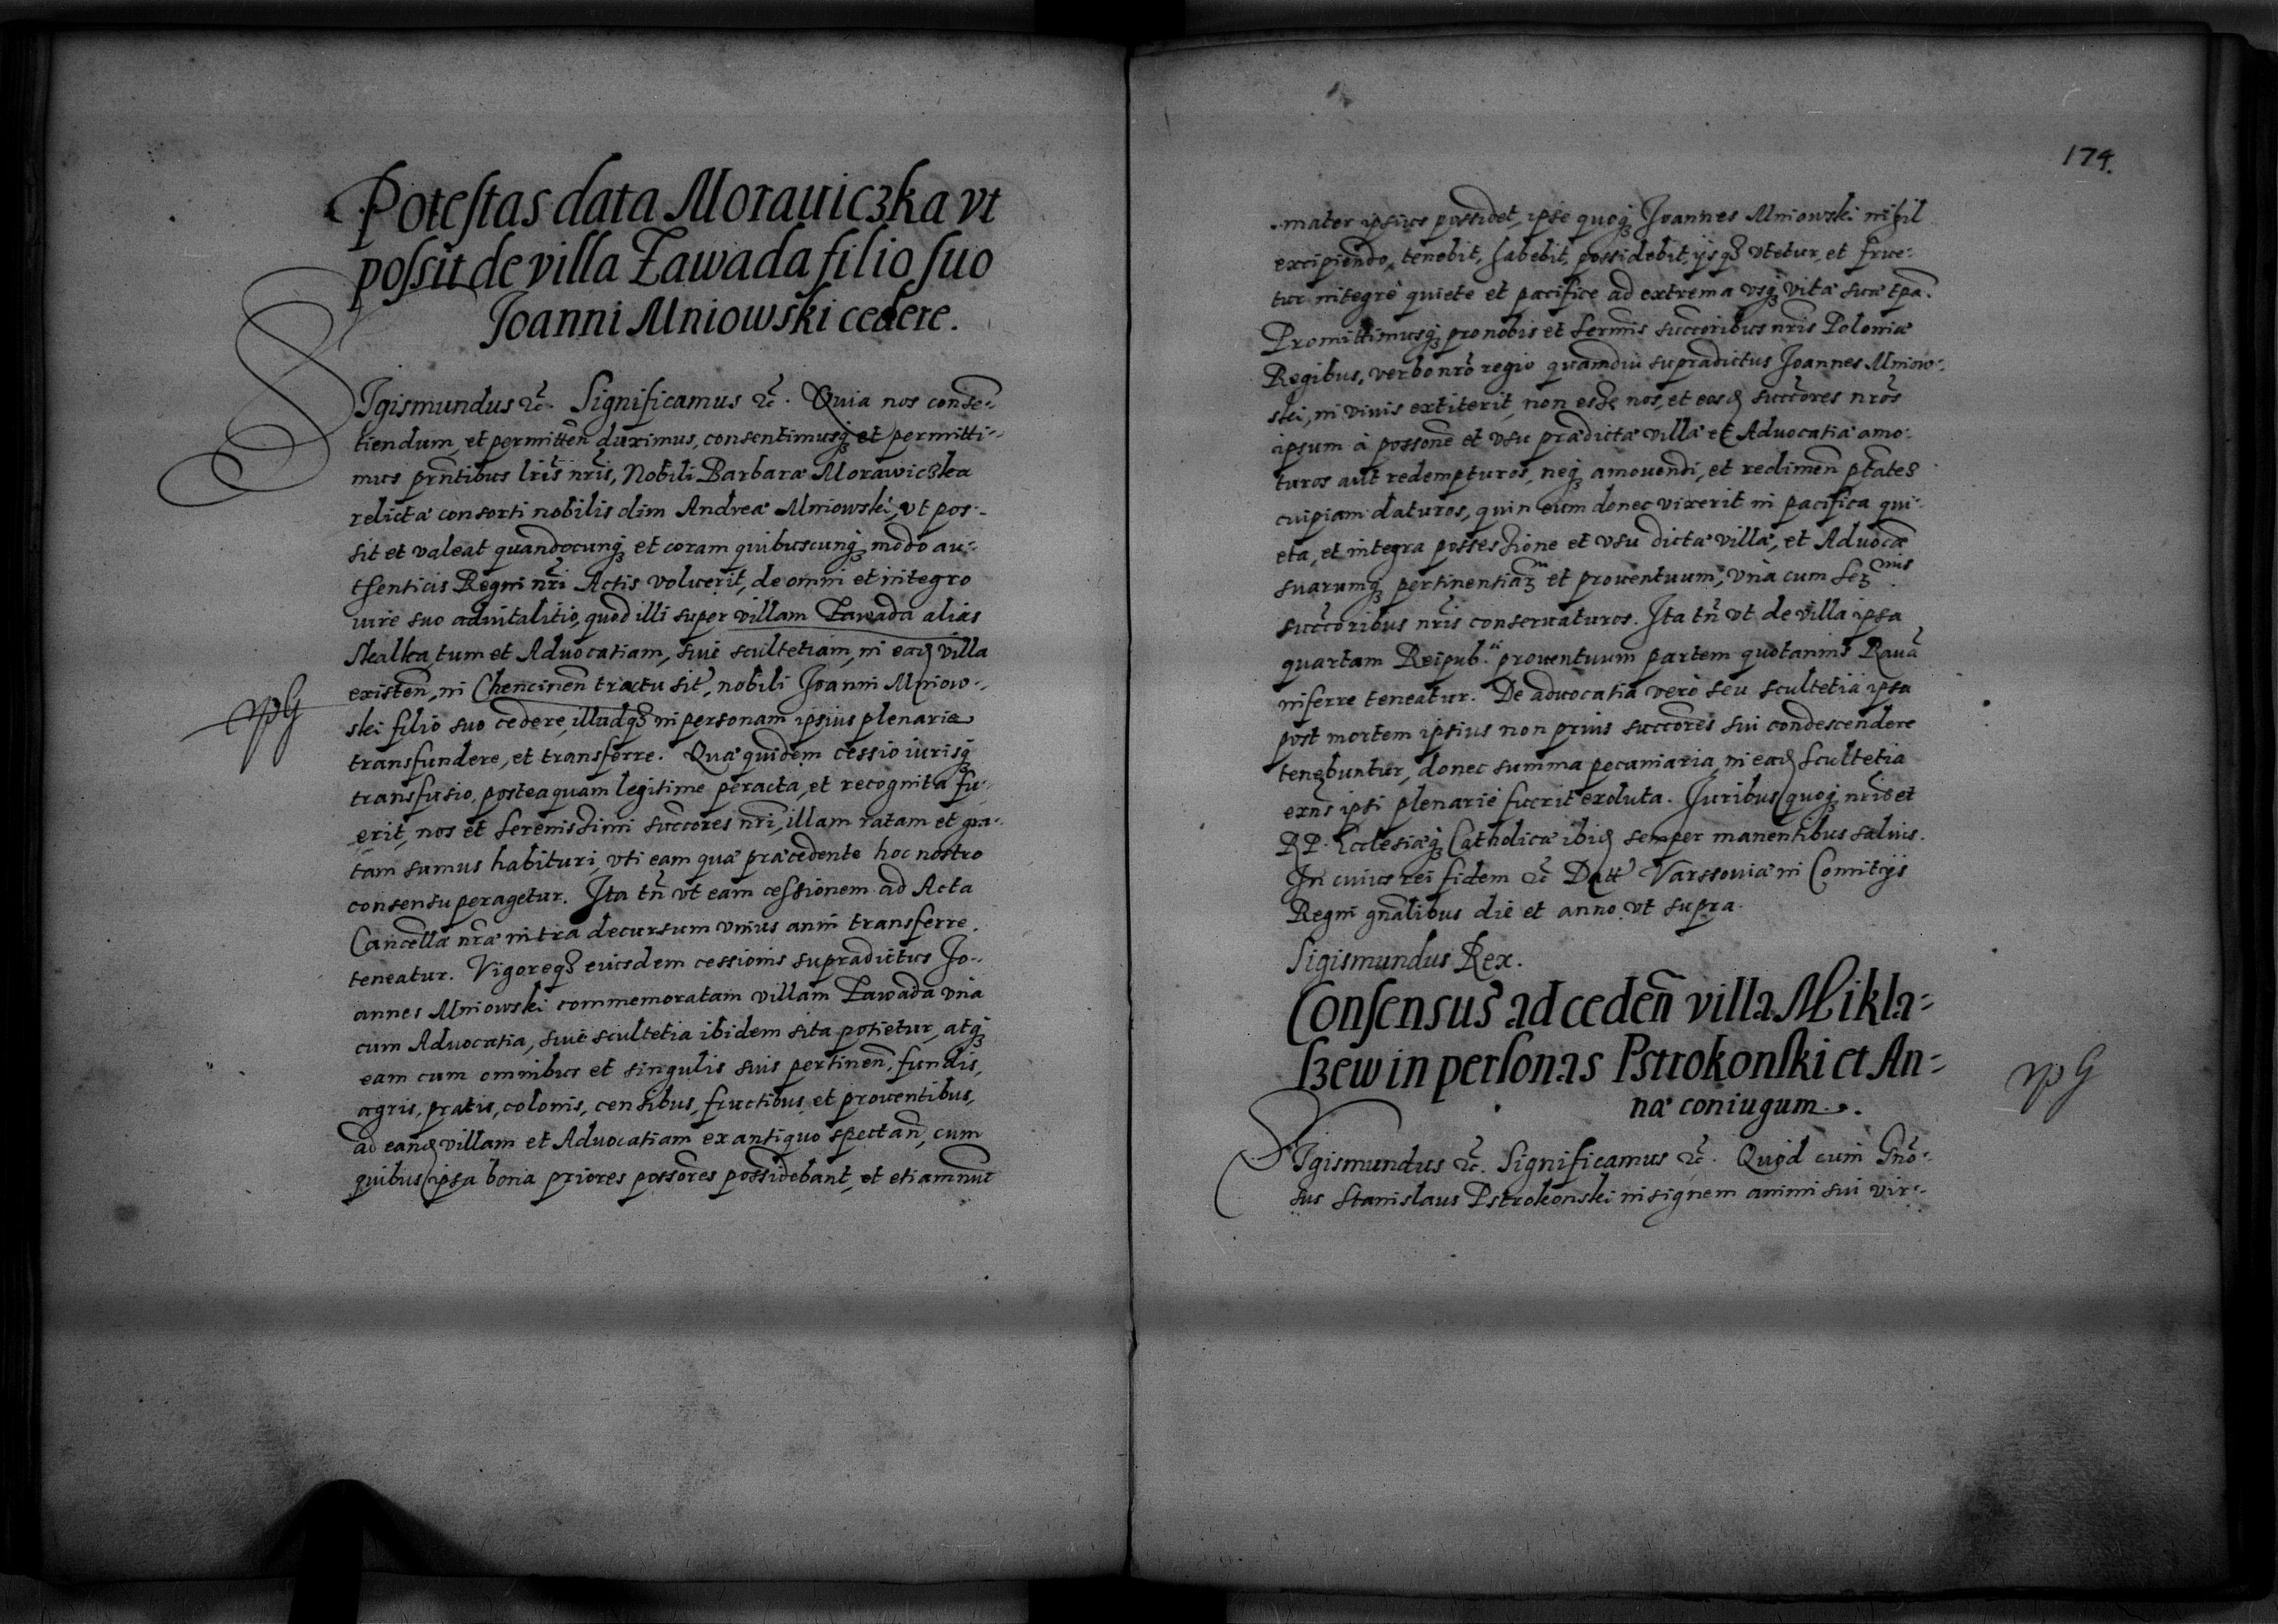 Potestas data Morauiczka vt
possit de villa Zawada filio suo
Joanni Mniowski cedere.
SJgismundus ⁊c̃. Significamus ⁊c̃. Quia nos conse͂-
tiendum, et permitten͂ duximus, consentimusqȝ et permitti-
mus prn͂tibus lrĩs nrĩs, Nobili Barbaræ Morawiczka
relictæ consorti nobilis olim Andreæ Mniowski, vt pos-
sit et valeat quandocunqȝ et coram quibuscunqȝ modo au-
thenticis Regni nrĩ Actis voluerit, de omni et integro
iure suo aduitalitio, quod illi super villam Zawada alias
Skalka, tum et Aduocatiam, siue scultetiam, in eađ villa
existen͂, in Chencinen͂ tractu sit͂, nobili Joanni Mniow-
ski filio suo cedere, illudqȝ in personam ipsius plenarie
transfundere, et transferre. Quæ quidem cessio iurisqȝ
transfusio, posteaquam legitime peracta, et recognita fu-
erit, nos et Serenissimi succo͂res nrĩ, illam ratam et gra-
tam sumus habituri, vti eam quæ præcedente hoc nostro
consensu peragetur. Ita tñ vt eam cessionem ad Acta
Cancellæ nr͂æ intra decursum vnius anni transferre
teneatur. Vigoreqȝ eiusdem cessionis supradictus Jo-
annes Mniowski commemoratam villam Zawada vna
cum Aduocatia, siue scultetia ibidem sita potietur, atqȝ
eam cum omnibus et singulis suis pertinen͂, fundis,
agris, pratis, colonis, censibus, fructibus, et prouentibus,
ad eanđ villam et Aduocatiam ex antiquo spectan͂, cum
quibus ipsa bona priores posso͂res possidebant, et etiamnũ
174.
mater ipsius possidet, ipse quoqȝ Joannes Mniowski nihil
excipiendo, tenebit, habebit, possidebit, ijsqȝ vtetur, et frue-
tur integrè quiete et pacifice ad extrema vsqȝ vitæ suæ tp͂a.
Promittimusqȝ pro nobis et Serm͂is succo͂ribus nrĩs Poloniæ
Regibus, verbo nrõ regio quamdiu supradictus Joannes Mniow-
ski, in viuis extiterit, non esse nos, et eosđ succo͂res nrõs
ipsum à posson͂e et vsu prædictæ villæ et Aduocatiæ amo-
turos aut redempturos, neqȝ amouendi, et redimen͂ ptãtes
cuipiam daturos, quin eum donec vixerit in pacifica qui-
eta, et integra possessione et vsu dictæ villæ, et Aduocæ͂
suarumqȝ pertinentiaȝ et prouentuum, vnà cum Serȝmis
succo͂ribus nrĩs conseruaturos. Ita tñ vt de villa ipsa
quartam Reipub. prouentuum partem quotannis Rauã
inferre teneatur. De aduocatia verò seu scultetia ipsa
post mortem ipsius non prius succo͂res sui condescendere
tenebuntur, donec summa pecuniaria, in eađ Scultetia
exñs ipsi plenariè fuerit exoluta. Juribus quoqȝ nrĩs et
RP. Ecclesiæqȝ Catholicæ ibiđ semper manentibus saluis.
In cuius rei fidem ⁊c̃ Datt͂ Varssouiæ in Comitijs
Regni gn͂alibus die et anno vt supra.
Sigismundus Rex.
Consensus ad ceden͂ villa Mikla-
szew in personas Pstrokonski et An-
næ coniugum.
SJgismundus ⁊c̃. Significamus ⁊c̃. Quod cum Gnõ-
sus Stanislaus Pstrokonski insignem animi sui vir-